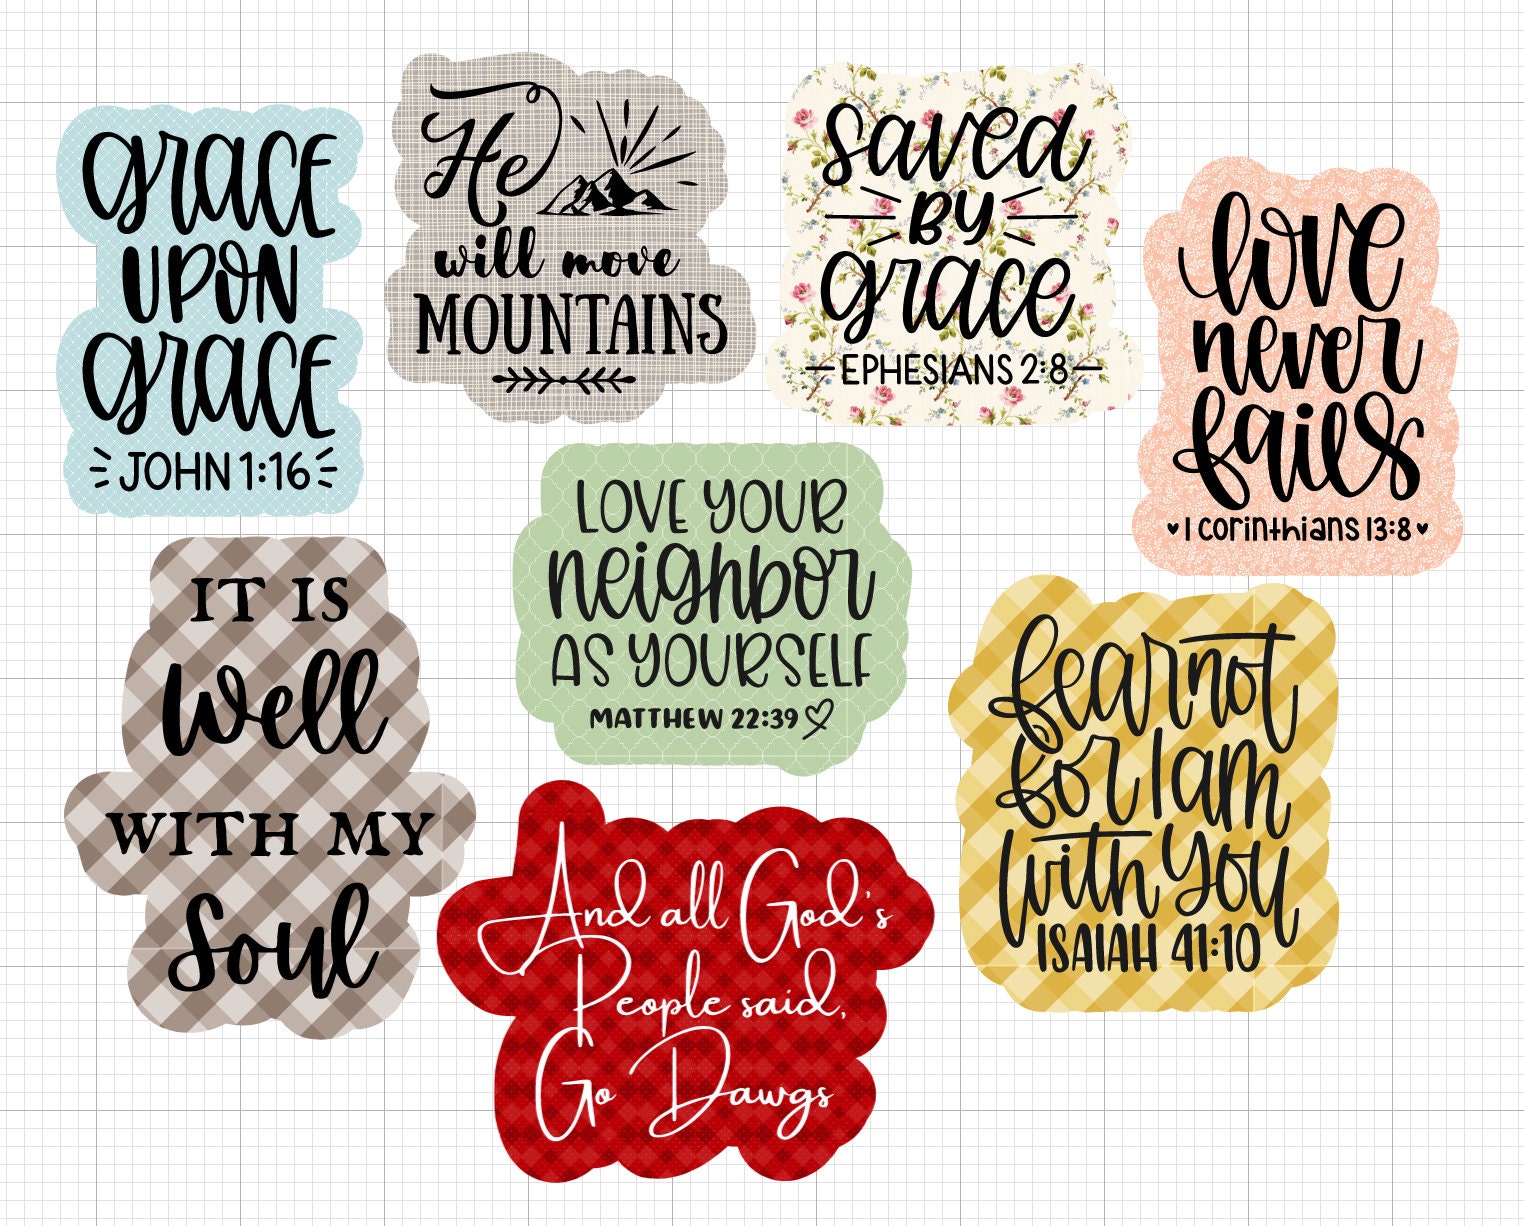 grace
UPON
grace
JOHN 1:16
He
will move
MOUNTAINS
saved
BY
grace
EPHESIANS 2:8
love
never
fails
1 corinthians 13:8
LOVE YOUR
neighbor
AS YOURSELF
MATTHEW 22:39
IT IS
Well
WITH MY
Soul
fear not
for I am
with you
ISAIAH 41:10
And all God's
People said,
Go Dawgs